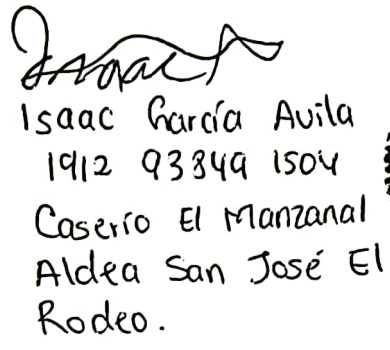 Isaac
Isaac García Avila
1912 93849 1504
Caserío El Manzanal
Aldea San José El
Rodeo.